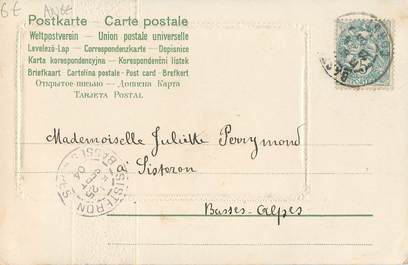 6€ ANGE
Postkarte - Carte postale
Weltpostverein — Union postale universelle
Levelező-Lap — Correspondenzkarte — Dopisnice
Karta korespondencyjna — Korespondenční listek
Briefkaart - Cartolina postale - Post card - Brefkort
Открытое письмо — Дописна Карта
TARJETA POSTAL
Mademoiselle Juliette Perrymond
à Sisteron
Basses-Alpes
SISTERON
25
04